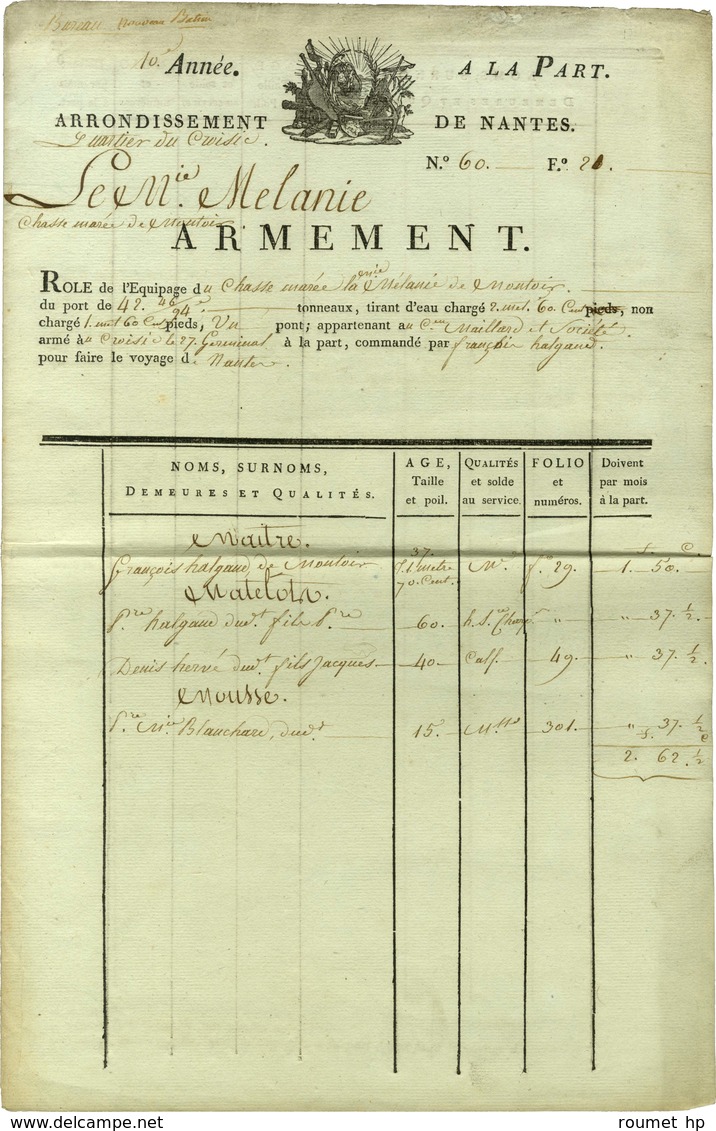 Bureau
10.e Année. A LA PART.
ARRONDISSEMENT DE NANTES.
Quartier du Croisic.
N.º 60. F.º 21.
Le M.ie Melanie
Chasse marée de Montoir
ARMEMENT.
ROLE de l'Equipage du Chasse marée la Mélanie de Montoir.
du port de 42. 46/94.e tonneaux, tirant d'eau chargé 2. met. 60 Cent pieds, non
chargé 1. met 60 Cent pieds, Un pont; appartenant au C.en Maillard et Société
armé au Croisic le 27. Germinal à la part, commandé par françois halgand.
pour faire le voyage de Nantes.
NOMS, SURNOMS,
DEMEURES ET QUALITÉS.
AGE,
Taille
et poil.
QUALITÉS
et solde
au service.
FOLIO
et
numéros.
Doivent
par mois
à la part.
Maitre.
37.
f. c.
françois halgand de Montoir 1 metre M.e f.o 29. 1. 50.
70. Cent.
Matelots.
P.re halgand dud.t fils P.re 60. h.S. " " 37. ½
Denis hervé dud.t fils Jacques 40. Calf. 49. " 37. ½
Mousse.
P.re M.ie Blanchard, dud.t 15. M.sse 301. " 37. ½
f. c
2. 62. ½
roumet hp